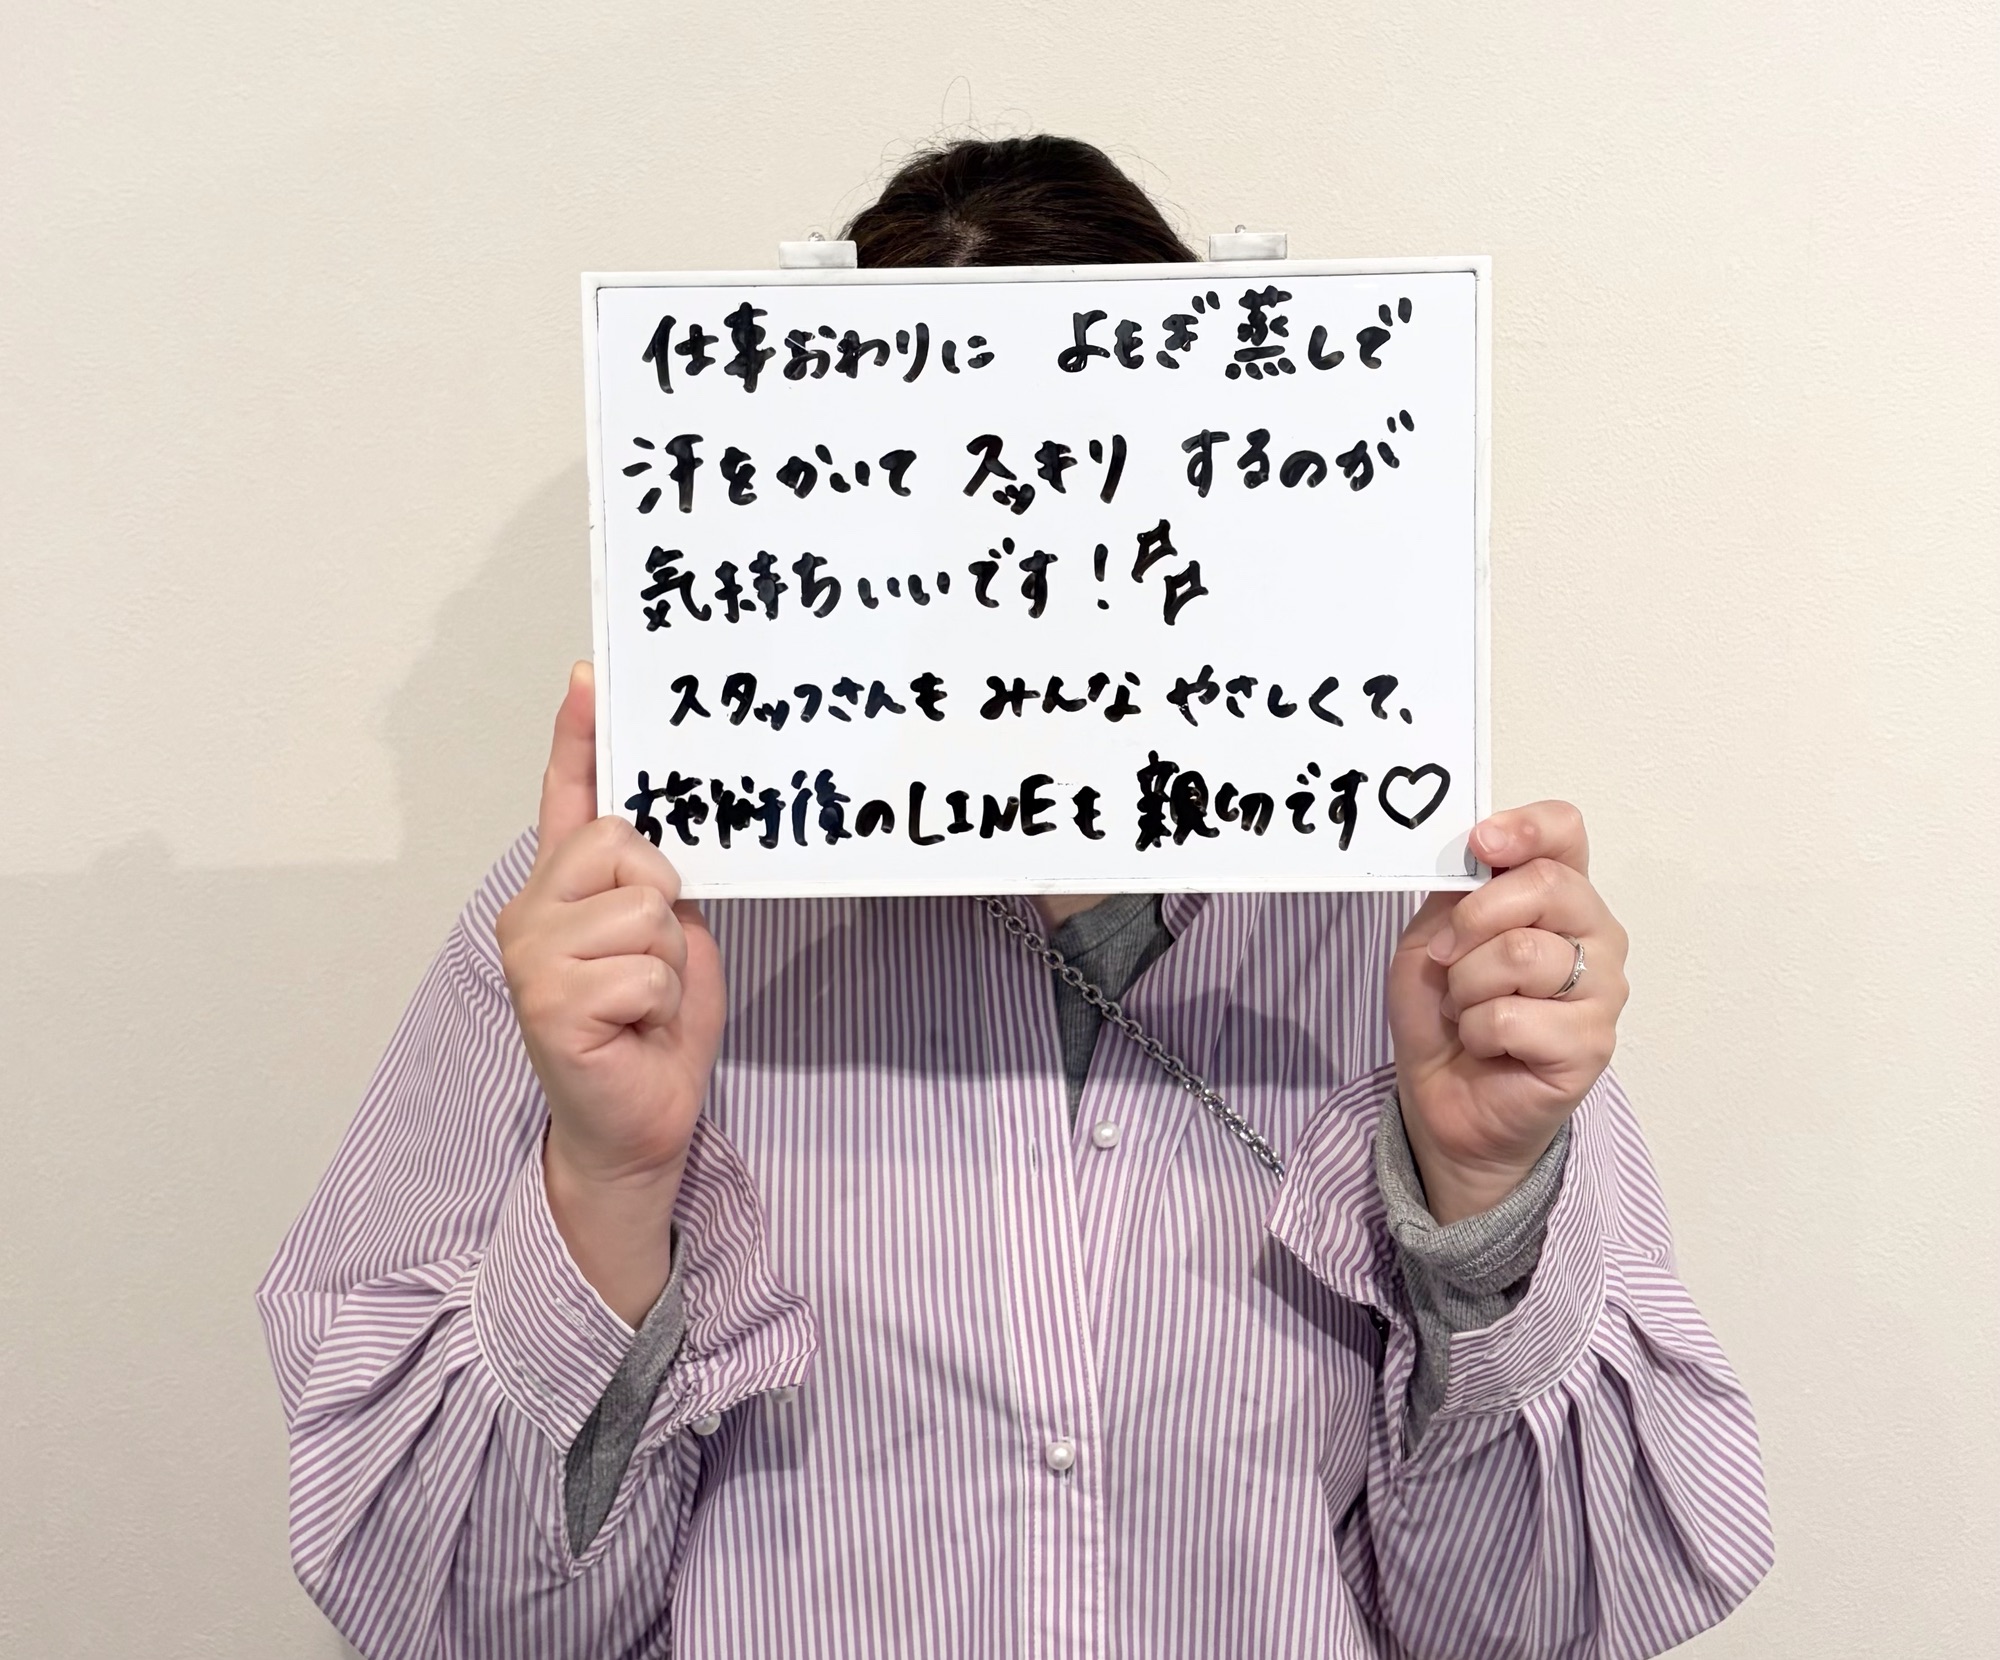 仕事おわりに よもぎ蒸しで
汗をかいて スッキリ するのが
気持ちいいです！
スタッフさんも みんな やさしくて、
施術後のLINEも 親切です♡